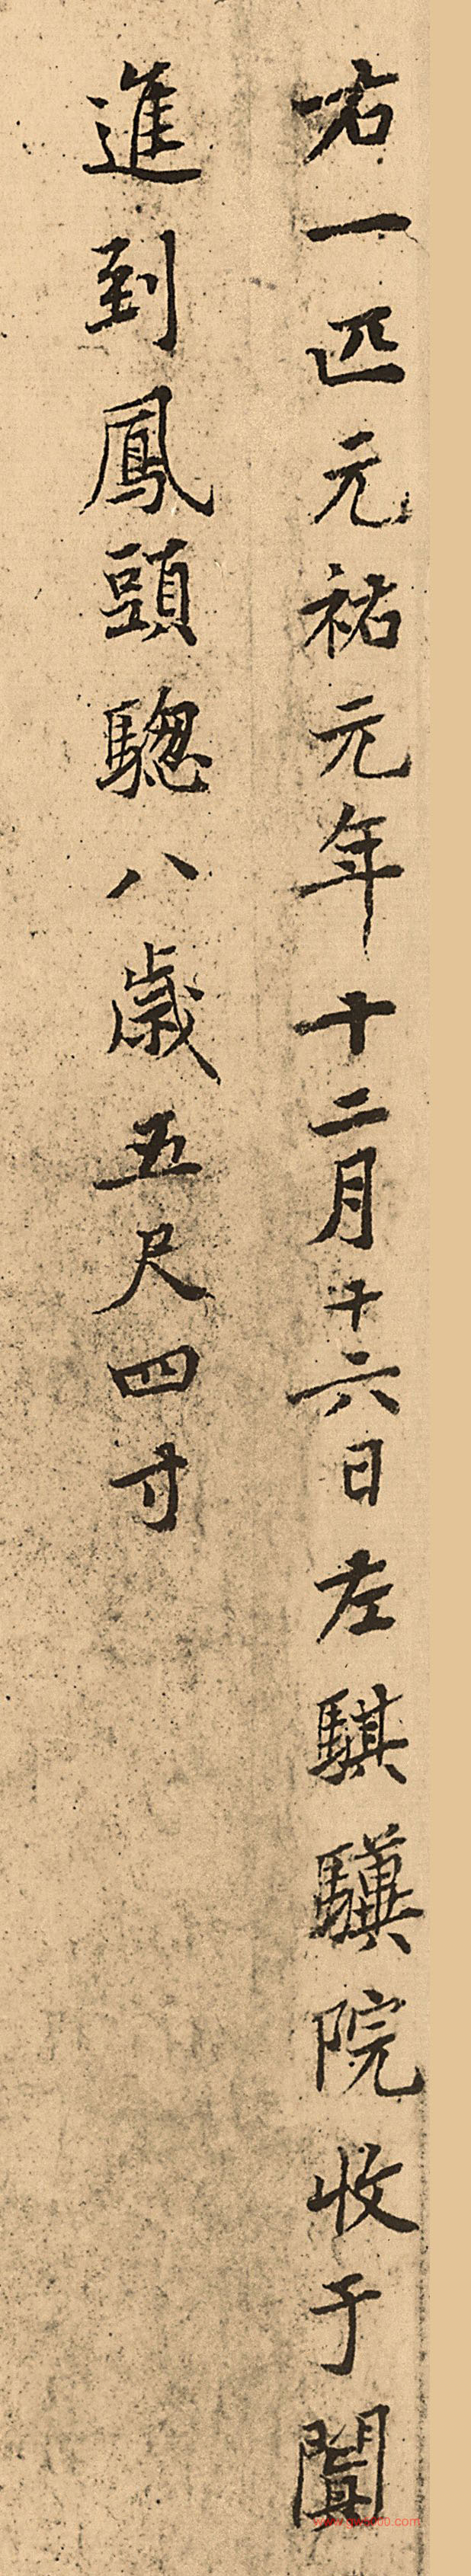 右一匹元祐元年十二月十六日左騏驥院收于闐
進到鳳頭驄八歲五尺四寸